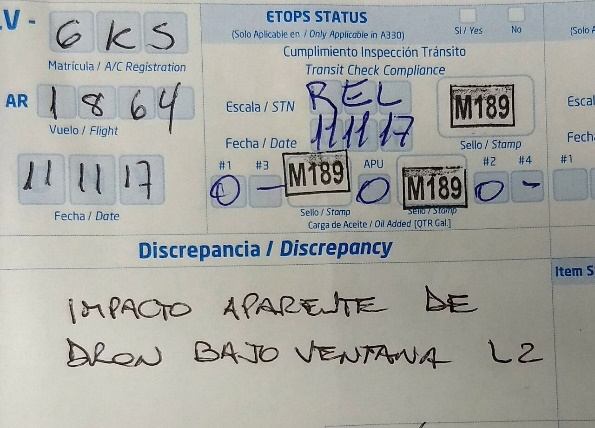 LV - GKS
Matrícula / A/C Registration
AR 1864
Vuelo / Flight
11 11 17
Fecha / Date
ETOPS STATUS
(Solo Aplicable en / Only Applicable in A330)
Si / Yes
No
Cumplimiento Inspección Tránsito
Transit Check Compliance
Escala / STN REL
Fecha / Date 11 11 17
M189
Sello / Stamp
#1 #3 APU #2 #4
0 - M189 0 M189 0 -
Sello / Stamp Sello / Stamp
Carga de Aceite / Oil Added [QTR Gal.]
(Solo
#1
Discrepancia / Discrepancy
Item
IMPACTO APARENTE DE
DRON BAJO VENTANA L2